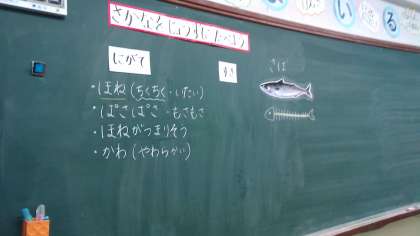 さかなをじょうずにたべよう
にがて
すき
さば
・ほね(ちくちく・いたい)
・ぱさぱさ・もさもさ
・ほねがつまりそう
・かわ(やわらかい)
いる